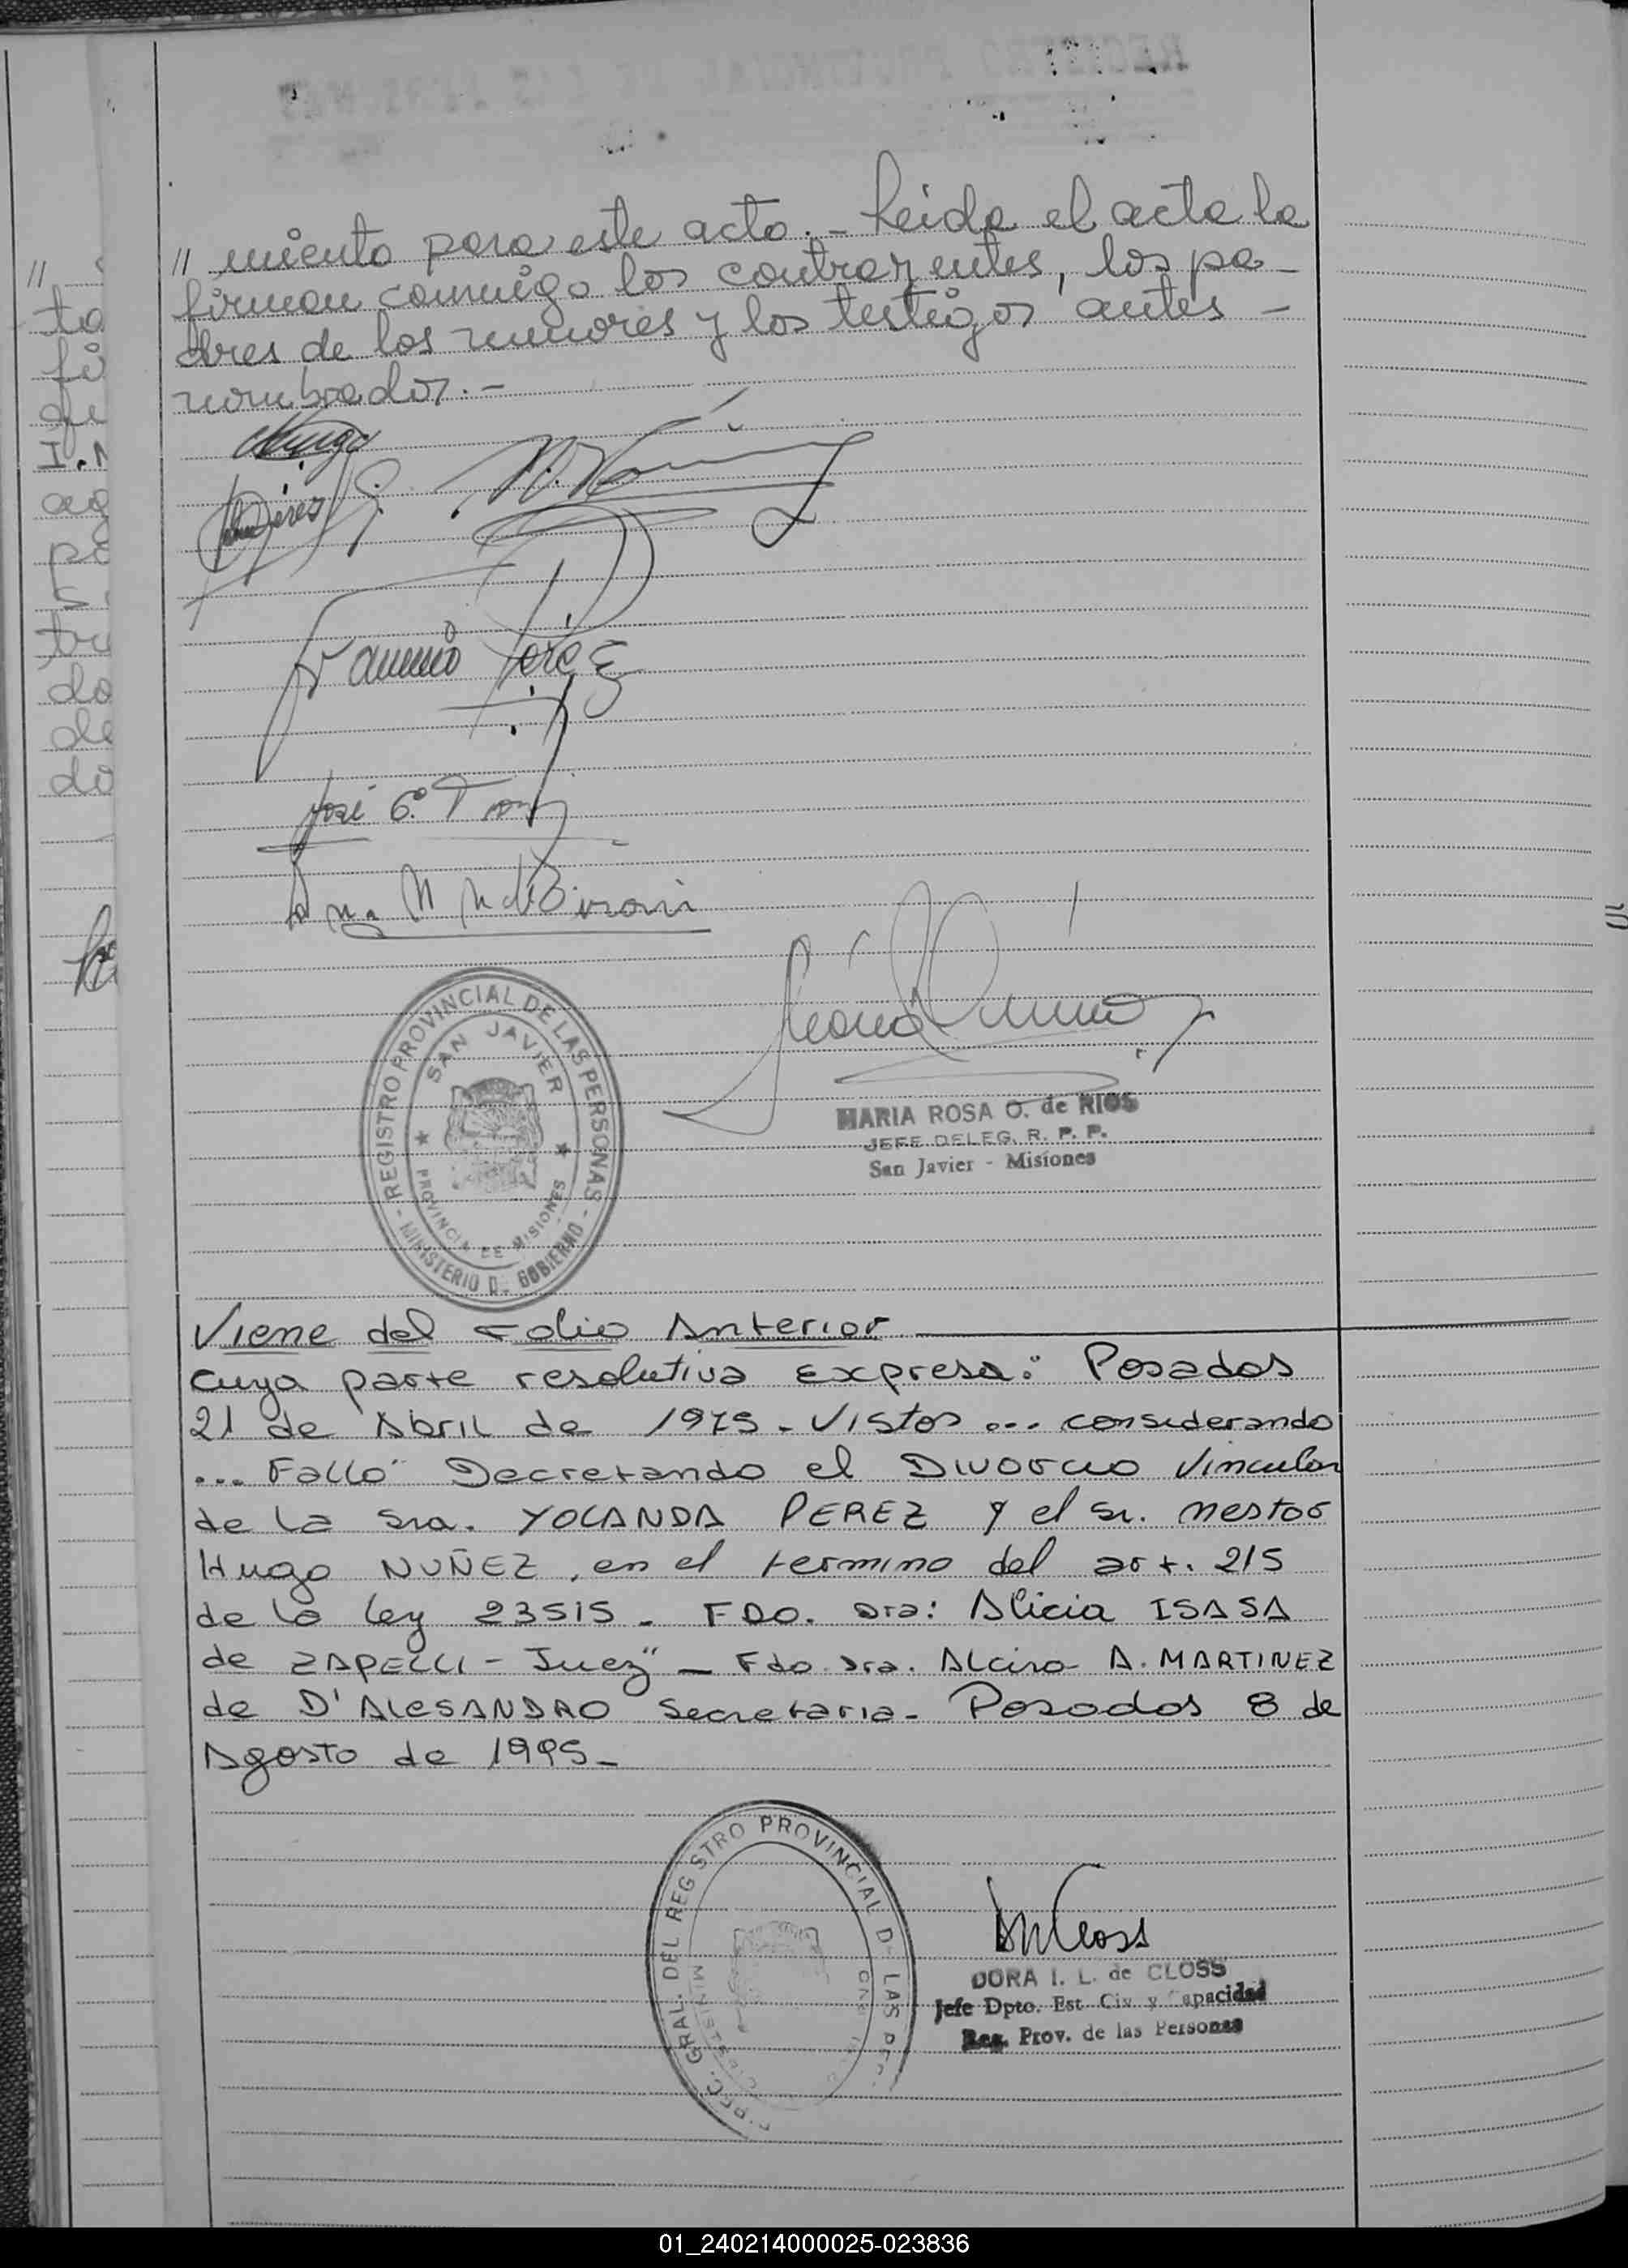 // miento para este acto.- Leida el acta la
firman conmigo los contrayentes, los pa-
dres de los menores y los testigos antes -
nombrados.-
REGISTRO PROVINCIAL DE LAS PERSONAS
- MINISTERIO D. GOBIERNO -
SAN JAVIER
PROVINCIA DE MISIONES
MARIA ROSA O. de RIOS
JEFE DELEG. R. P. P.
San Javier - Misiones
Viene del Folio Anterior
cuya parte resolutiva expresa: Posadas
21 de Abril de 1975 - Vistos ... considerando
... Fallo" Decretando el Divorcio Vincular
de la Sra. YOLANDA PEREZ y el Sr. Nestor
Hugo NUÑEZ, en el termino del art. 215
de la ley 23515 - FDO. Dra: Alicia ISASA
de ZAPELLI - Juez" - Fdo. Dra. Alcira A. MARTINEZ
de D'ALESANDRO Secretaria - Posadas 8 de
Agosto de 1995 -
GRAL. DEL REGISTRO PROVINCIAL D. LAS
DORA I. L. de CLOSS
Jefe Dpto. Est. Civ. y Capacidad
Reg. Prov. de las Personas
01_240214000025-023836